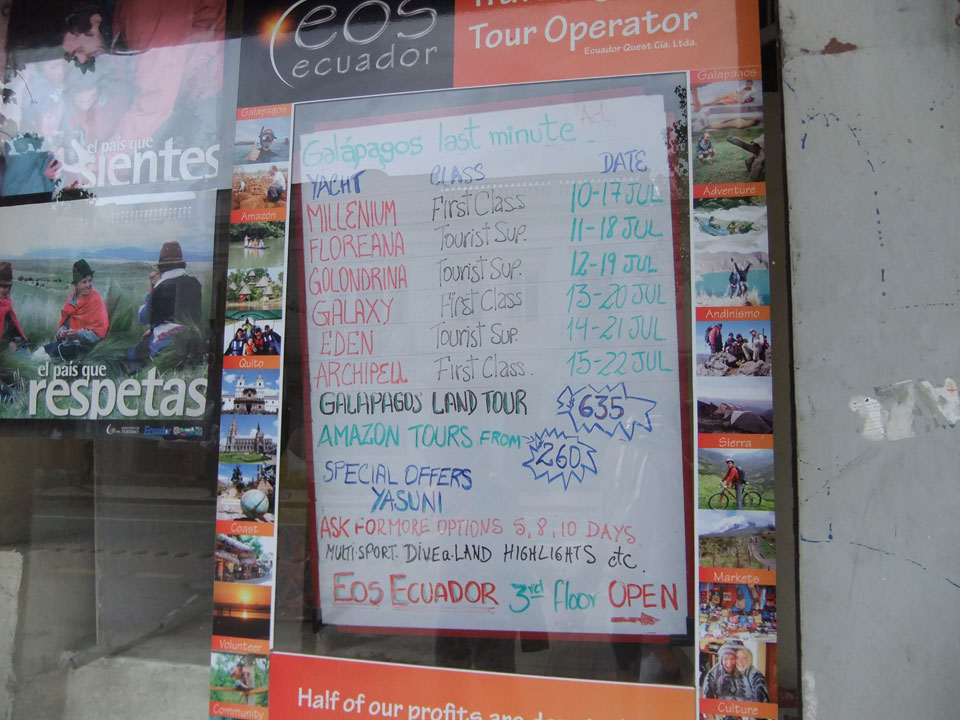 eos
ecuador
Tour Operator
Ecuador Quest Cia. Ltda.
el país que
sientes
el país que
respetas
Galápagos
Amazon
Quito
Coast
Volunteer
Community
Galápagos last minute Act
YACHT CLASS DATE
MILLENIUM First Class 10-17 JUL
FLOREANA Tourist Sup. 11-18 JUL
GOLONDRINA Tourist Sup. 12-19 JUL
GALAXY First Class 13-20 JUL
EDEN Tourist Sup. 14-21 JUL
ARCHIPELL First Class. 15-22 JUL
GALAPAGOS LAND TOUR 635
AMAZON TOURS FROM 260
SPECIAL OFFERS
YASUNI
ASK FOR MORE OPTIONS 5, 8, 10 DAYS.
MULTI-SPORT. DIVE a LAND HIGHLIGHTS etc.
EOS ECUADOR 3rd floor OPEN
Galapagos
Adventure
Andinismo
Sierra
Markets
Culture
Half of our profits are